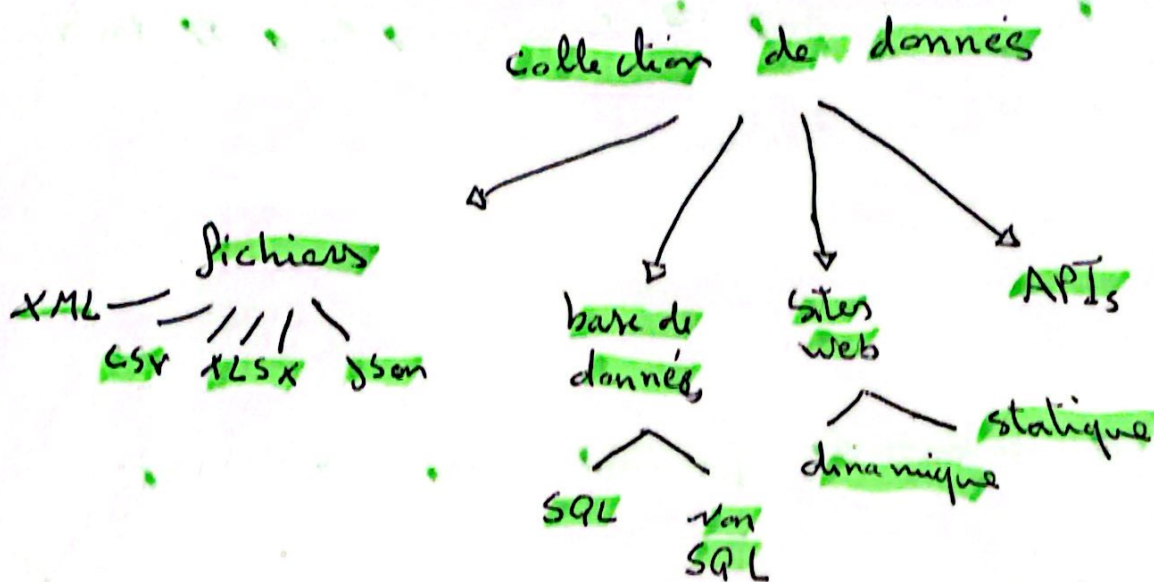 collection de donnés
fichiers
XML
CSV
XLSX
json
base de
donnés
SQL
Non
SQL
Sites
web
dinamique
statique
APIs